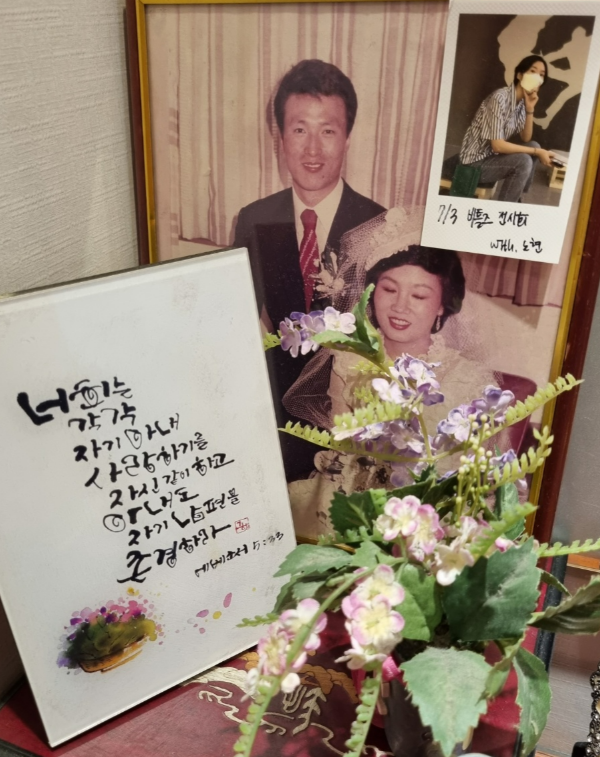 너희는
각각
자기 아내
사랑하기를
자신 같이 하고
아내도
자기 남편을
존경하라
에베소서 5:33
7/3 비틀즈 전시회
with. 노현